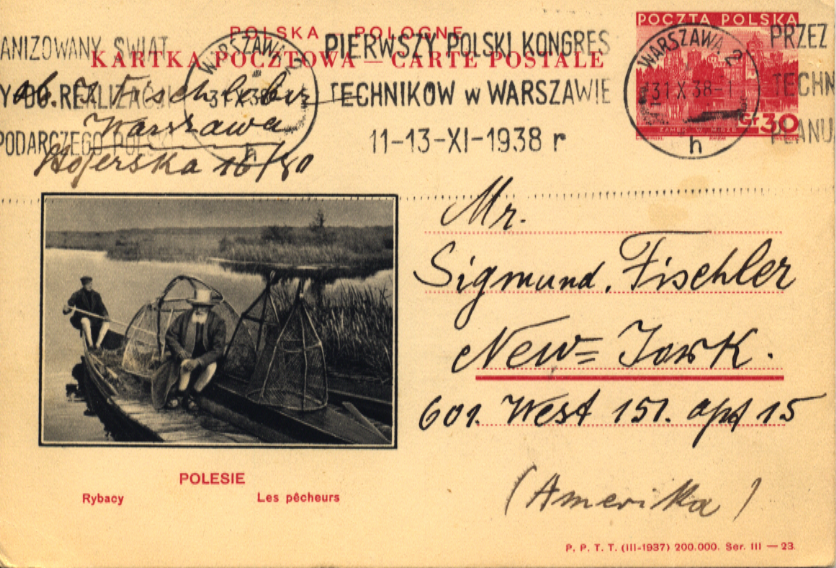 POLSKA - POLOGNE
KARTKA POCZTOWA — CARTE POSTALE
POCZTA POLSKA
ZAMEK W MIRZE
GR 30
ANIZOWANY ŚWIAT
Y DO REALIZACJI
PODARCZEGO POLSKI
WARSZAWA 2
31 X 38
h
PIERWSZY POLSKI KONGRES
TECHNIKÓW W WARSZAWIE
11-13-XI-1938 r
WARSZAWA 2
31 X 38-1
h
PRZEZ
TECHN
PLANU
ab. J. Fischleber
Warszawa
16/80
Mr.
Sigmund. Fischler
New=York.
601. West 151. apt 15
(Amerika)
POLESIE
Rybacy Les pêcheurs
P. P. T. T. (III-1937) 200.000. Ser. III — 23.